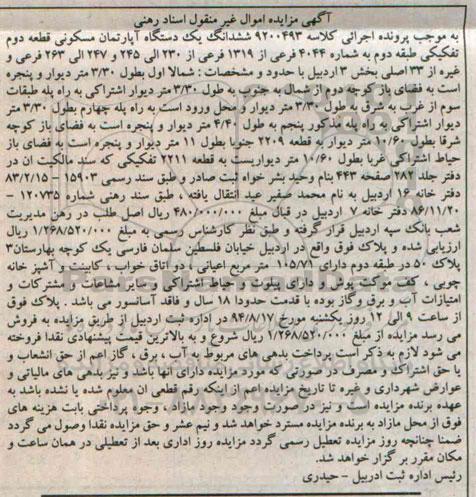 آگهی مزایده اموال غیر منقول اسناد رهنی
به موجب پرونده اجرائی کلاسه ۹۲۰۰۴۹۳ ششدانگ یک دستگاه آپارتمان مسکونی قطعه دوم
تفکیکی طبقه دوم به شماره ۴۰۴۴ فرعی از ۱۳۱۹ فرعی از ۲۳۰ الی ۲۴۵ و ۲۴۷ الی ۲۶۳ فرعی و
غیره از ۳۳ اصلی بخش ۳ اردبیل با حدود و مشخصات : شمالا اول بطول ۳/۳۰ متر دیوار و پنجره
است به فضای باز کوچه دوم از شمال به جنوب به طول ۳/۳۰ متر دیوار اشتراکی به راه پله طبقات
سوم از غرب به شرق به طول ۳/۳۰ متر دیوار و محل ورود است به راه پله چهارم بطول ۳/۳۰ متر
دیوار اشتراکی به راه پله مذکور پنجم به طول ۴/۴۰ متر دیوار و پنجره است به فضای باز کوچه
شرقا بطول ۱۰/۶۰ متر دیوار به قطعه ۲۲۰۹ جنوبا بطول ۱۱ متر دیوار و پنجره است به فضای باز
حیاط اشتراکی غربا بطول ۱۰/۶۰ متر دیواریست به قطعه ۲۲۱۱ تفکیکی که سند مالکیت ان در
دفتر جلد ۲۸۲ صفحه ۴۴۳ بنام وحید بشر خواه ثبت صادر و طبق سند رسمی ۱۵۹۰۳ – ۸۳/۲/۱۵
دفتر خانه ۱۶ اردبیل به نام محمد صفیر عبد انتقال یافته ، طبق سند رهنی شماره ۱۲۰۷۳۵ –
۸۶/۱۱/۲۰ دفتر خانه ۷ اردبیل در قبال مبلغ ۴۸۰/۰۰۰/۰۰۰ ریال اصل طلب در رهن مدیریت
شعب بانک سپه اردبیل قرار گرفته و طبق نظر کارشناس رسمی به مبلغ ۱/۲۶۸/۵۲۰/۰۰۰ ریال
ارزیابی شده و پلاک فوق واقع در اردبیل خیابان فلسطین سلمان فارسی یک کوچه بهارستان۳
پلاک ۵۰ در طبقه دوم دارای ۱۰۵/۷۱ متر مربع اعیانی ، دو اتاق خواب ، کابینت و آشپز خانه
چوبی ، کف موکت پوش و دارای پیلوت و حیاط اشتراکی و سایر مشاعات و مشترکات و
امتیازات آب و برق وگاز بوده با قدمت حدودا ۱۸ سال و فاقد آسانسور می باشد . پلاک فوق
از ساعت ۹ الی ۱۲ روز یکشنبه مورخ ۹۴/۸/۱۷ در اداره ثبت اردبیل از طریق مزایده به فروش
می رسد مزایده از مبلغ ۱/۲۶۸/۵۲۰/۰۰۰ ریال شروع و به بالاترین قیمت پیشنهادی نقدا فروخته
می شود لازم به ذکر است پرداخت بدهی های مربوط به آب ، برق ، گاز اعم از حق انشعاب و
یا حق اشتراک و مصرف در صورتی که مورد مزایده دارای آنها باشد و نیز بدهی های مالیاتی و
عوارض شهرداری و غیره تا تاریخ مزایده اعم از اینکه رقم قطعی ان معلوم شده یا نشده باشد به
عهده برنده مزایده است و نیز در صورت وجود وجود مازاد ، وجوه پرداختی بابت هزینه های
فوق از محل مازاد به برنده مزایده مسترد خواهد شد و نیم عشر و حق مزایده نقدا وصول می گردد
ضمنا چنانچه روز مزایده تعطیل رسمی گردد مزایده روز اداری بعد از تعطیلی در همان ساعت و
مکان مقرر بر گزار خواهد شد.
رئیس اداره ثبت ادربیل – حیدری